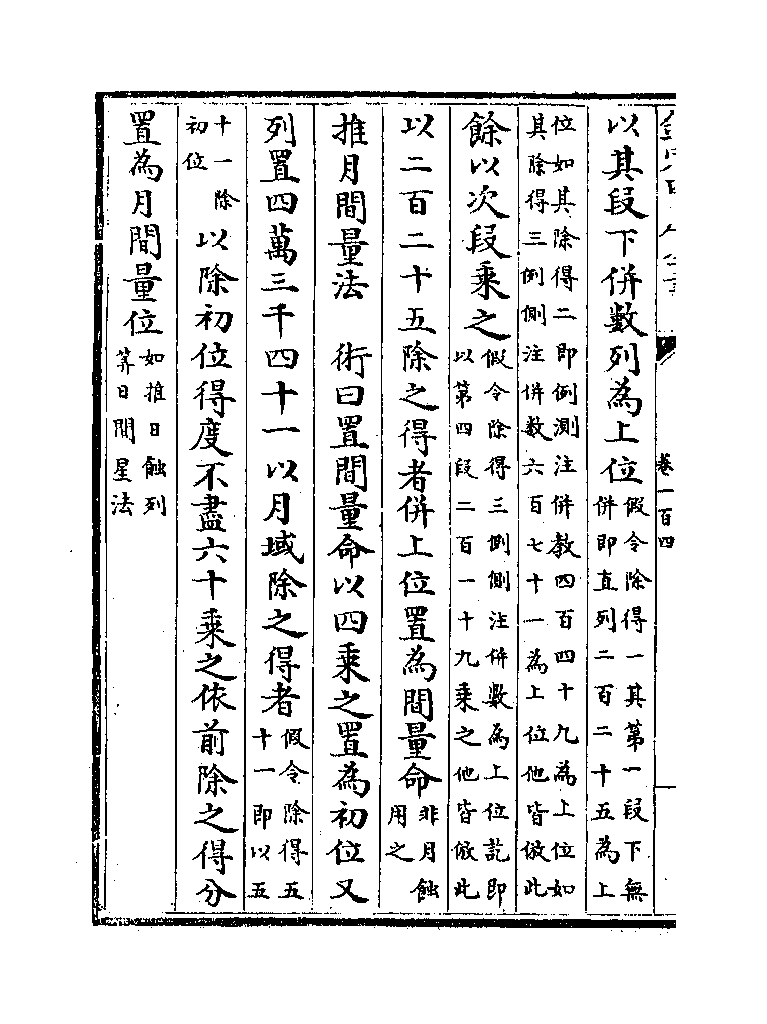 卷一百四
以其段下併數列為上位假令除得一其第一段下無併即直列二百二十五為上
位如其除得二即例測注併教四百四十九為上位如其除得三例側注併數六百七十一為上位他皆倣此
餘以次段乗之假令除得三例側注併數為上位訖即以第四段二百一十九乗之他皆倣此
以二百二十五除之得者併上位置為間量命非月蝕用之
推月間量法　術曰置間量命以四乗之置為初位又
列置四萬三千四十一以月域除之得者假令除得五十一即以五
十一除初位以除初位得度不盡六十乗之依前除之得分
置為月間量位如推日蝕列筭日間星法